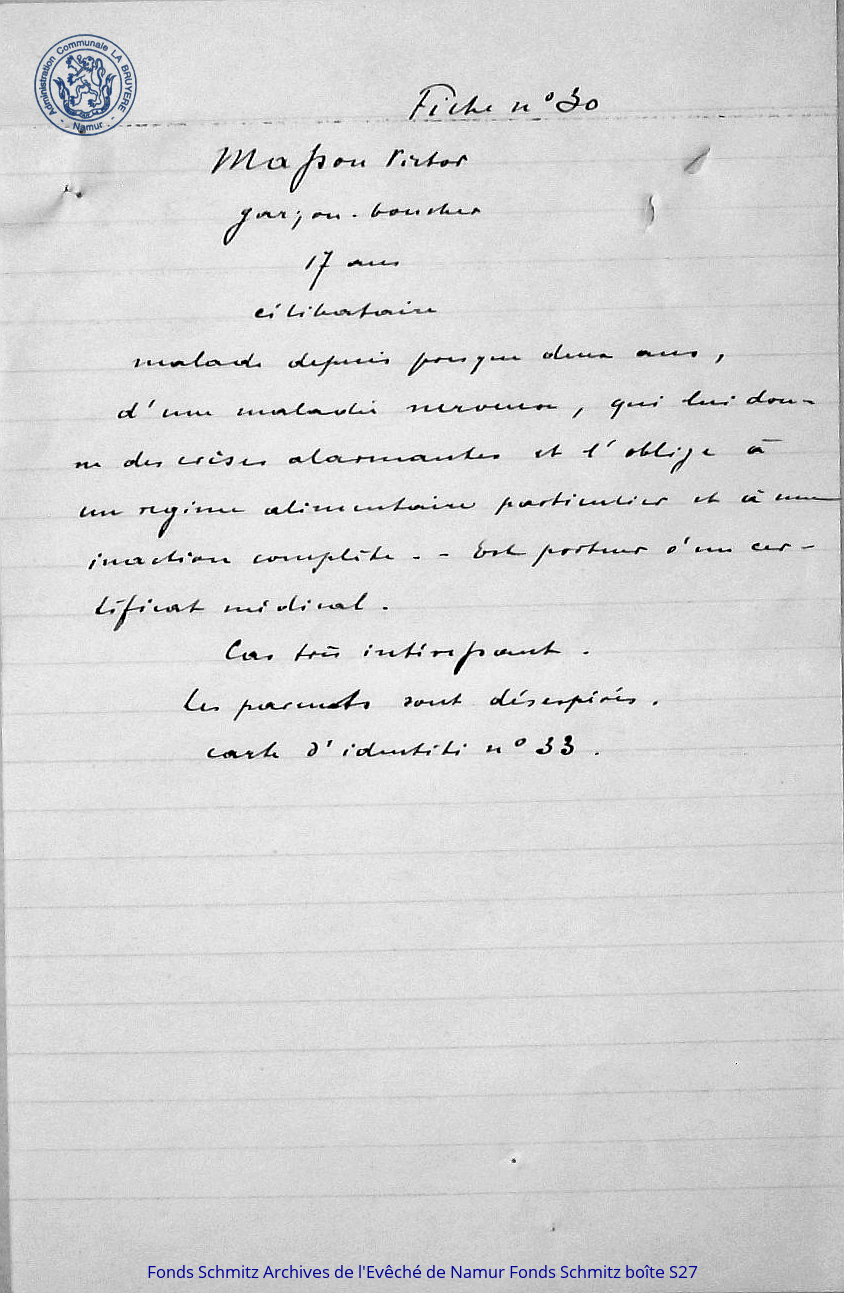 Administration Communale LA BRUYERE
- Namur -
Fiche n° 30
Masson Victor
garçon-boucher
17 ans
célibataire
malade depuis presque deux ans,
d'une maladie nerveuse, qui lui don-
ne des crises alarmantes et l'oblige à
un régime alimentaire particulier et à une
inaction complète. - Est porteur d'un cer-
tificat médical.
Cas très intéressant.
Les parents sont désespérés.
carte d'identité n° 33.
Fonds Schmitz Archives de l'Evêché de Namur Fonds Schmitz boîte S27